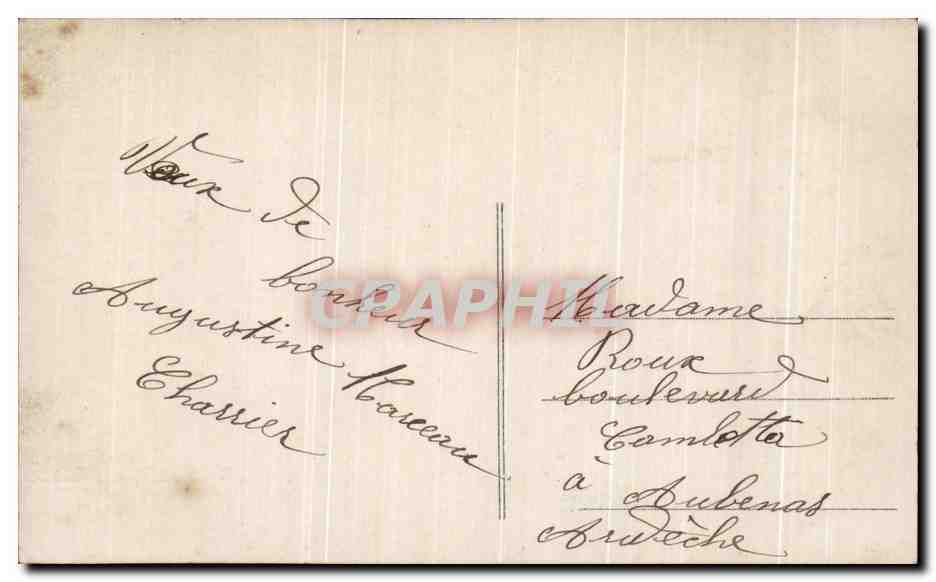 Vœux de
bonheur
Augustine Marceau
Charrier
CPAPHIL
Madame
Roux
boulevard
Gambetta
à Aubenas
Ardèche